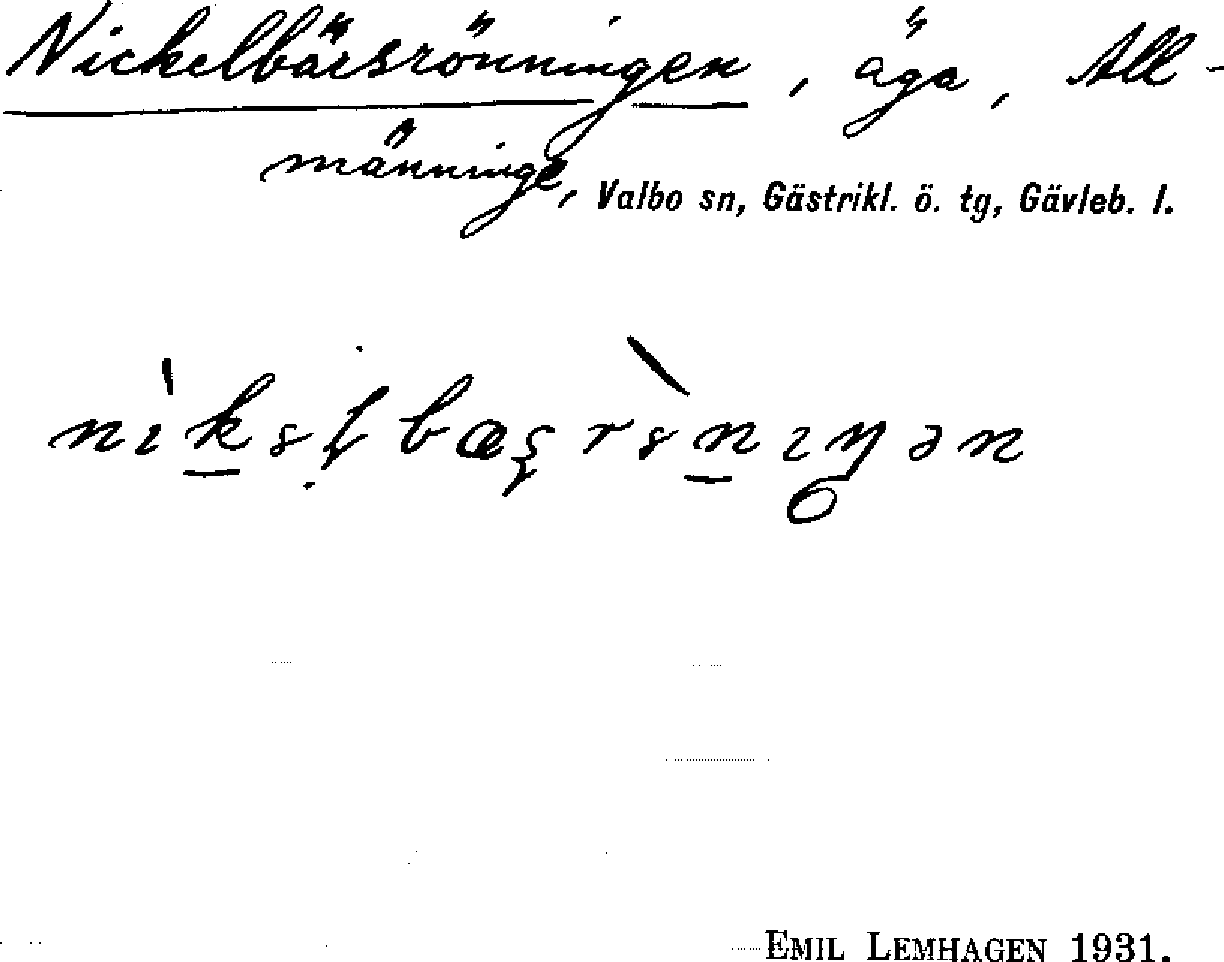 Nickelbärsrönningen, äga, All-
männinge, Valbo sn, Gästrikl. ö. tg, Gävleb. l.
EMIL LEMHAGEN 1931.